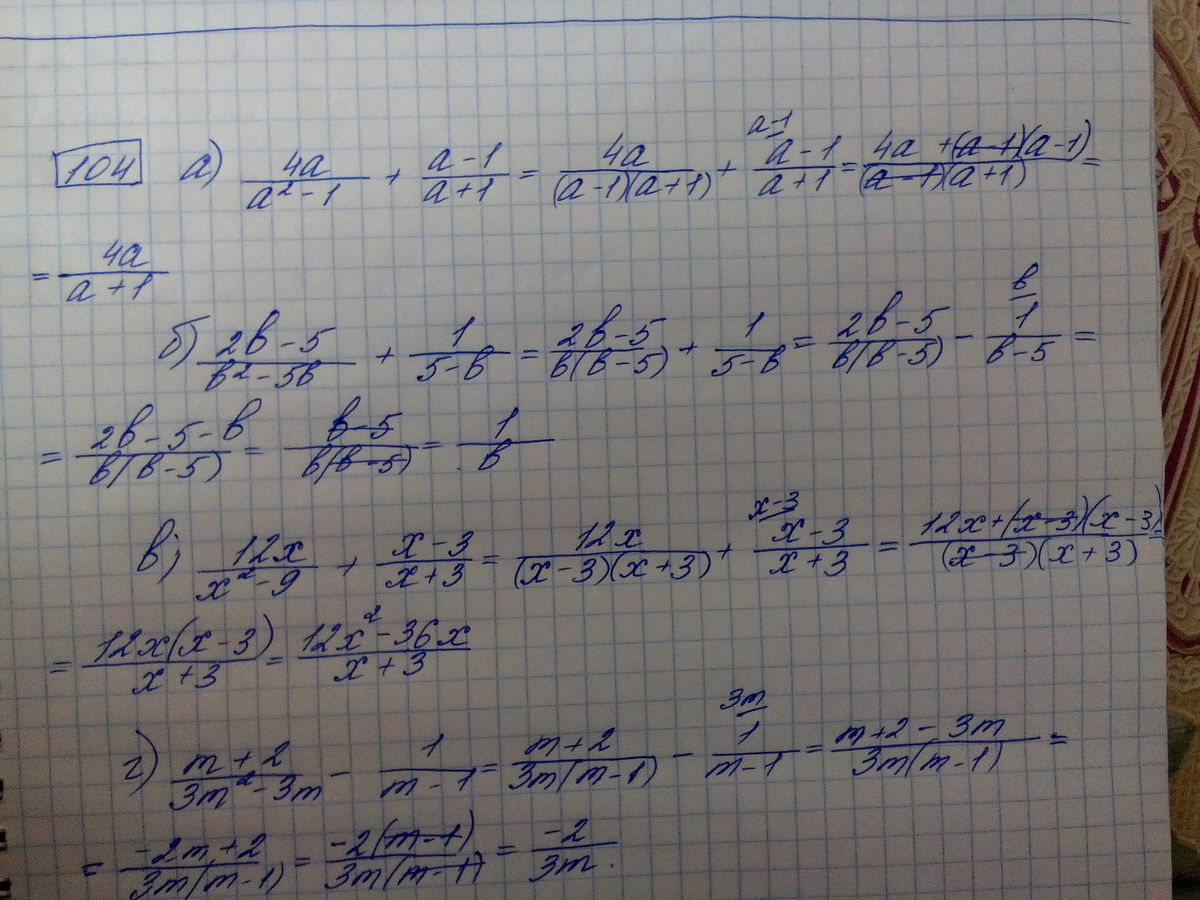 104 а) 4a/(a² - 1) + (a - 1)/(a + 1) = 4a/((a-1)(a+1)) + (a - 1)/(a + 1) [a-1] = (4a + (a-1)(a-1))/((a-1)(a+1)) =
= 4a/(a + 1)
б) (2b - 5)/(b² - 5b) + 1/(5-b) = (2b-5)/(b(b-5)) + 1/(5-b) = (2b-5)/(b(b-5)) - 1/(b-5) [b] =
= (2b - 5 - b)/(b(b-5)) = (b-5)/(b(b-5)) = 1/b
в) 12x/(x² - 9) + (x - 3)/(x + 3) = 12x/((x-3)(x+3)) + (x - 3)/(x + 3) [x-3] = (12x + (x-3)(x-3))/((x-3)(x+3)) =
= 12x(x-3)/(x + 3) = (12x² - 36x)/(x + 3)
г) (m + 2)/(3m² - 3m) - 1/(m - 1) = (m + 2)/(3m(m-1)) - 1/(m-1) [3m] = (m + 2 - 3m)/(3m(m-1)) =
= (-2m + 2)/(3m(m-1)) = -2(m-1)/(3m(m-1)) = -2/3m.